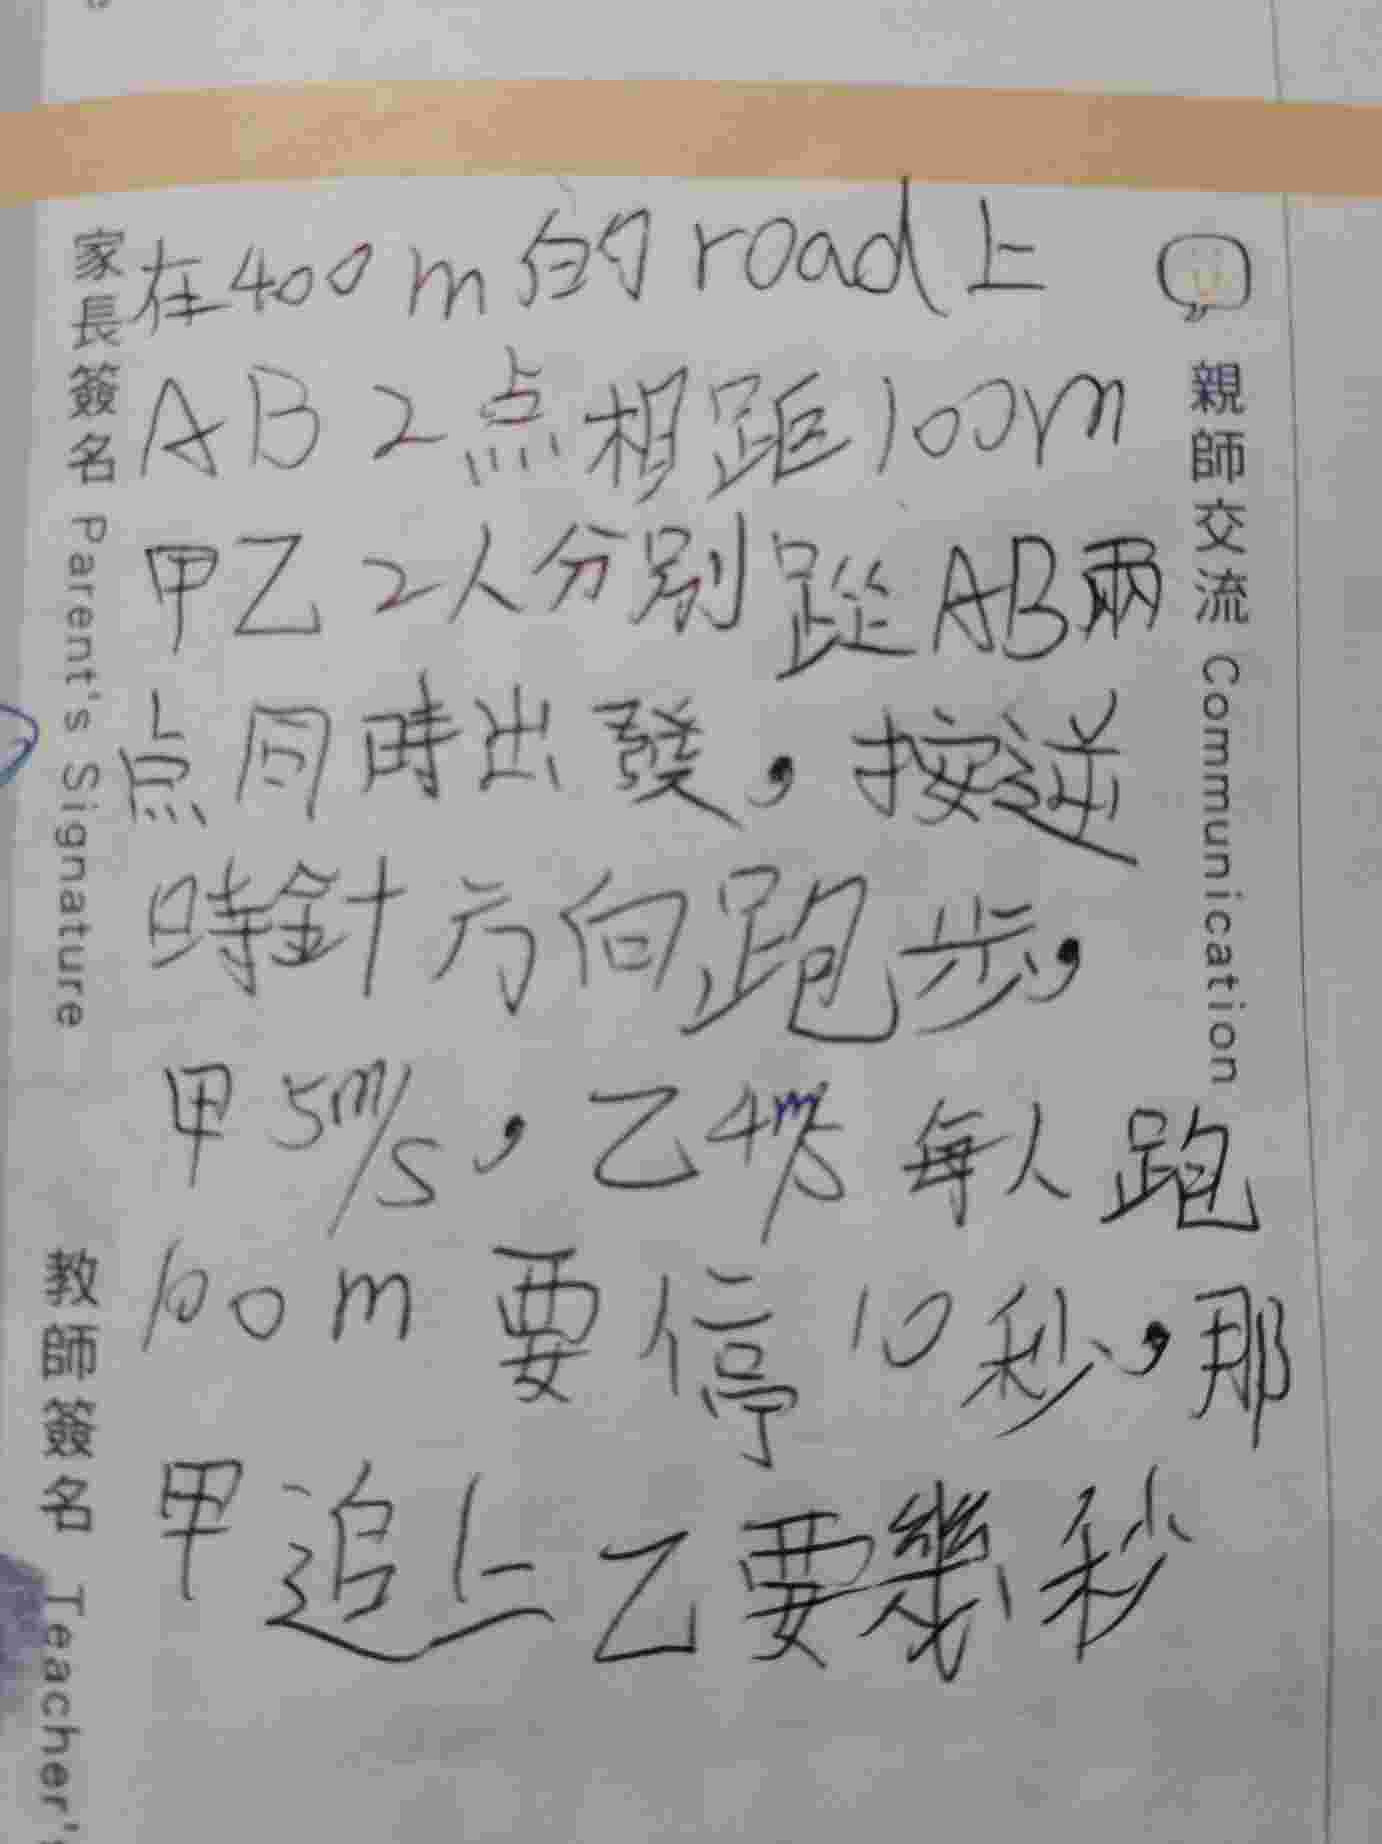 在400m的road上
AB2点相距100m
甲乙2人分別從AB兩
点同時出發，按逆
時針方向跑步，
甲5m/s，乙4m/s每人跑
100m要停10秒，那
甲追上乙要幾秒
家長簽名 Parent's Signature
教師簽名 Teacher's
親師交流 Communication